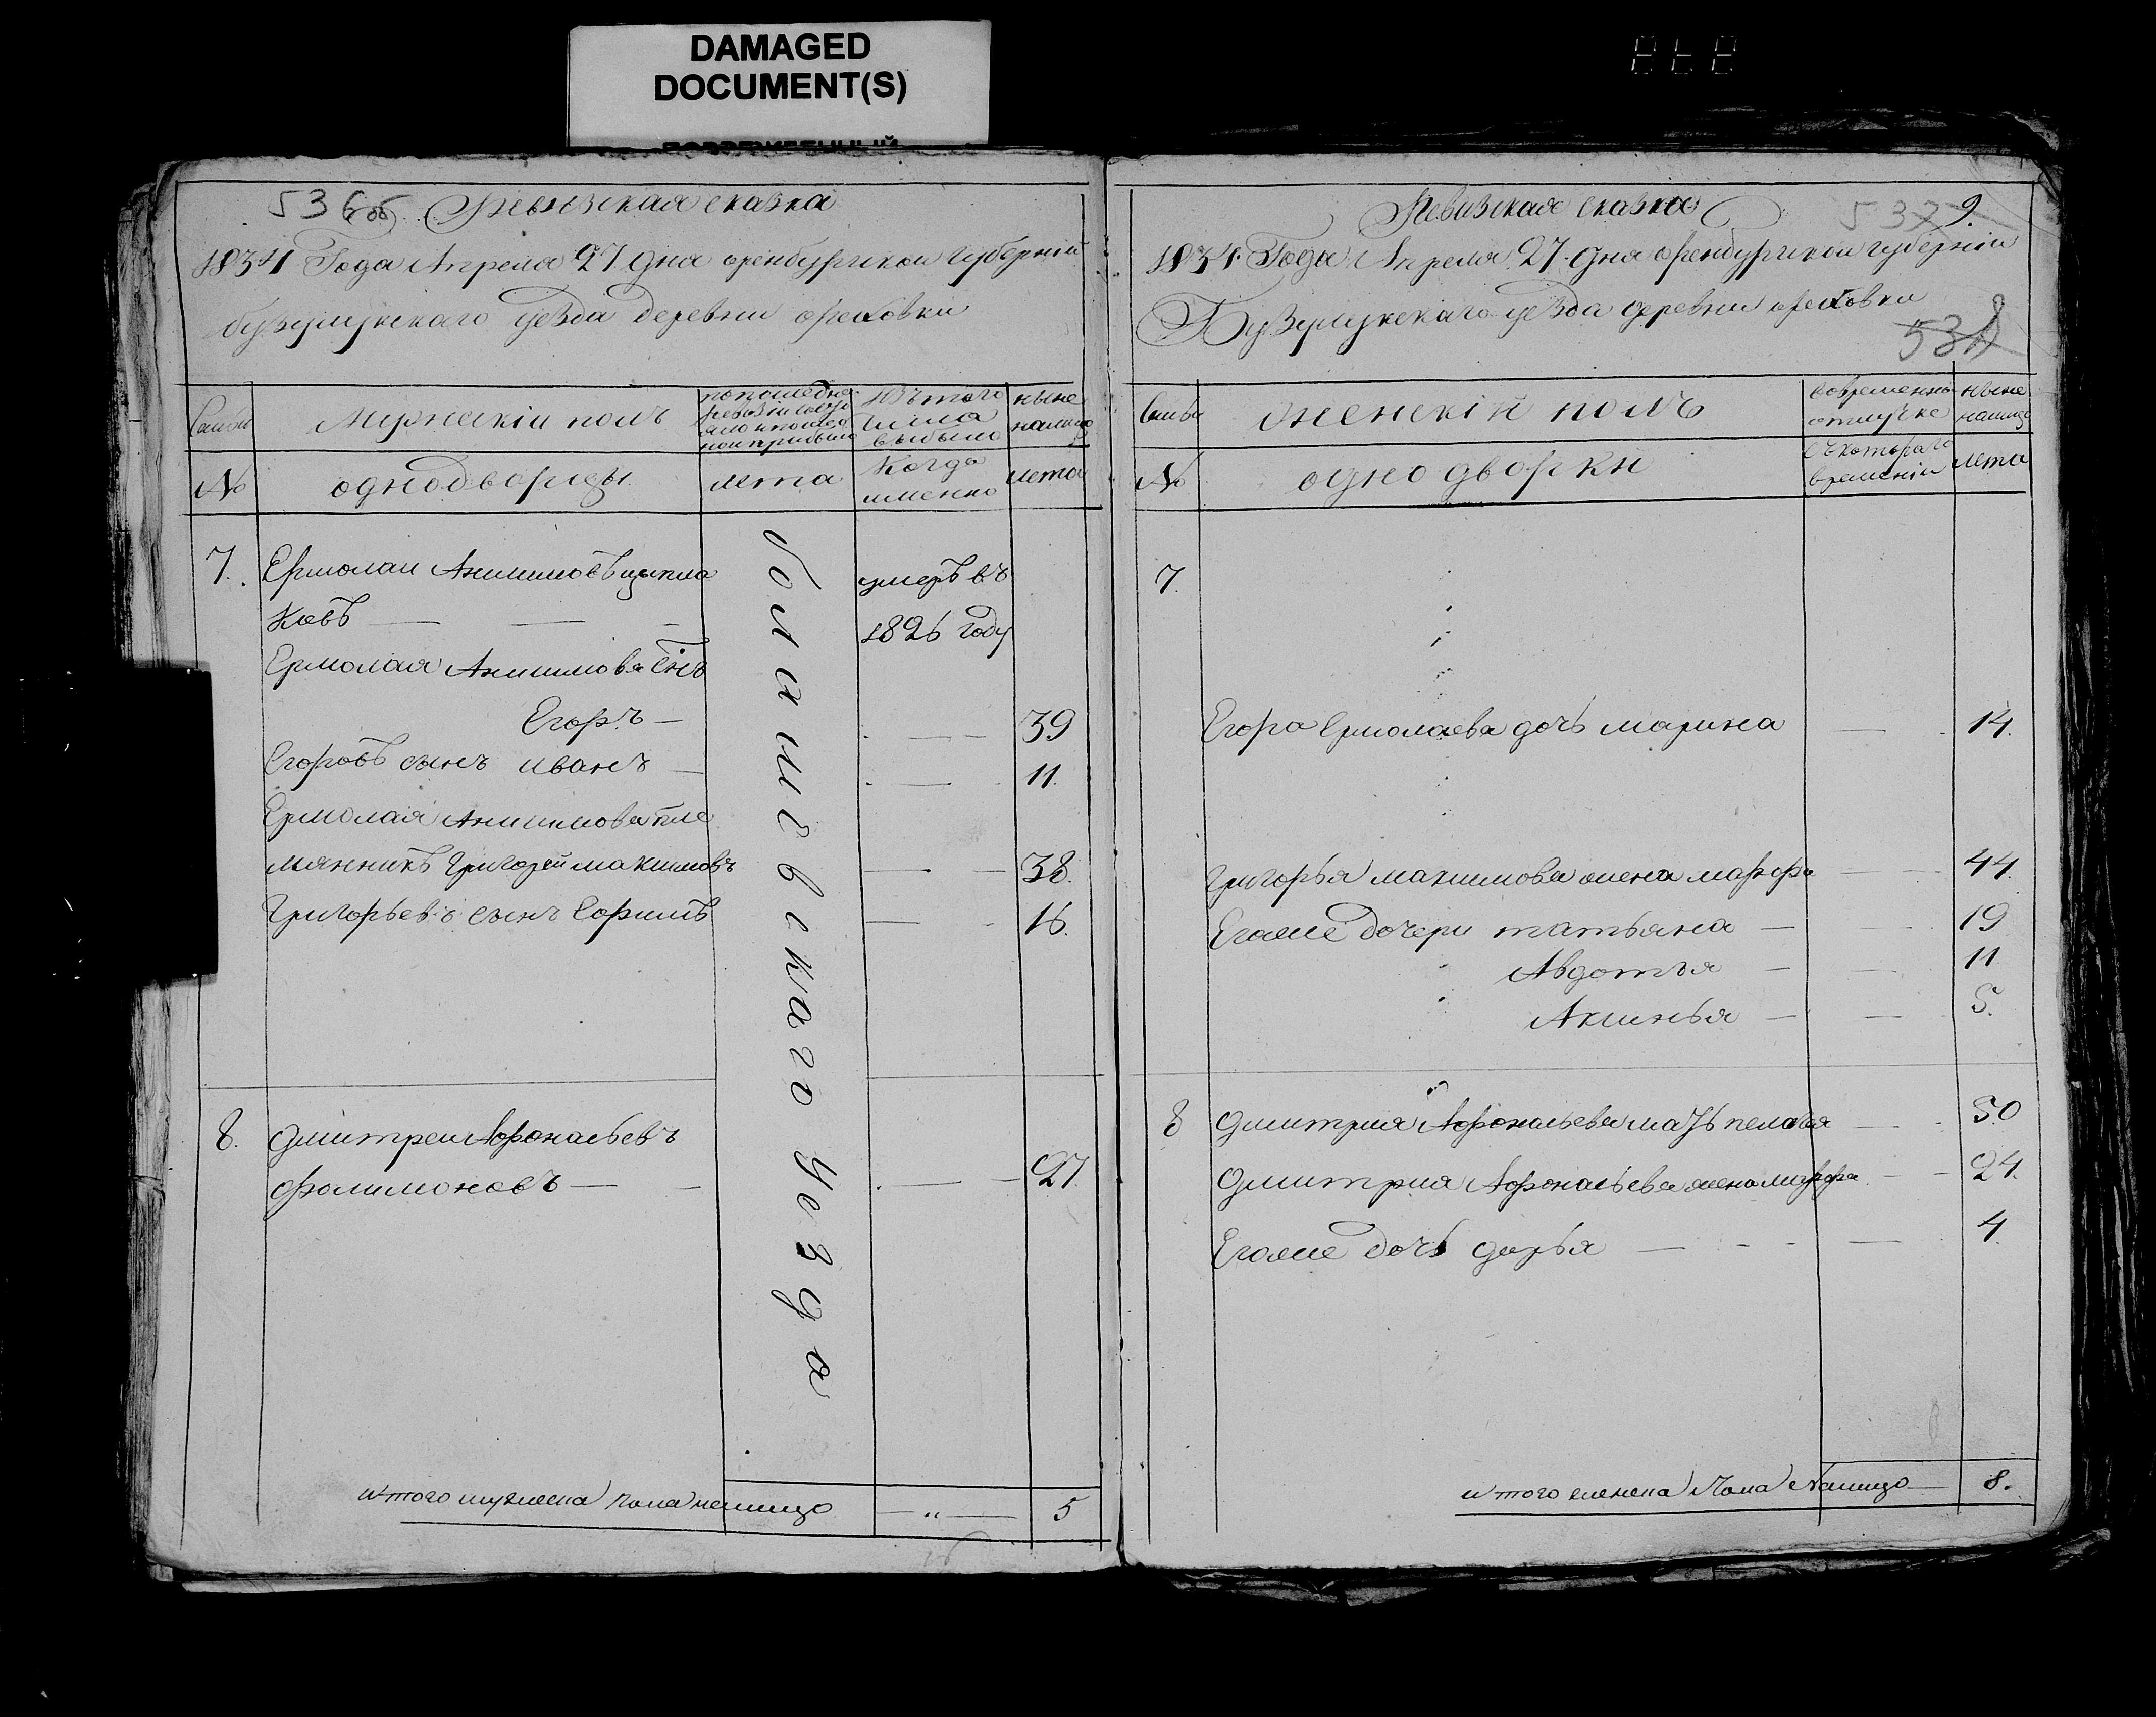 DAMAGED
DOCUMENT(S)
536 об
Ревизская сказка
1834 Года Апреля 27 дня оренбургской губернии
бузулукскаго уезда деревни ореховки
Семьи
Мужескій полъ
по последней
ревизіи состо
яло и после
ной прибыло
Изъ того
числа
выбыло
ныне
налицо
№
однодворцы
лета
Когда
именно
лета
7.
Ермолай Анисимовъ
ковъ
умеръ въ
1826 году
Ермолая Анисимова Сынъ
Егоръ
39
Егоровъ сынъ иванъ
11.
Ермолая Анисимова пле
мянникъ Григорей максимовъ
38.
Григорьевъ сынъ
16.
8.
дмитреи Афонасьевъ
фолимоновъ
27
болашевскаго уезда
итого мужеска пола налицо
5
Ревизская сказка
537
9.
1834. Года Апреля 27. дня оренбургской губерніи
Бузулукскаго уезда деревни ореховки
538
Семьи
женскій полъ
вовременной
отлучке
ныне
налицо
№
однодворки
съ котораго
времени
лета
7.
Егора Ермолаева дочь марина
14.
Григорья максимова жена марфа
44.
Егоже дочери татьяна
19
Авдотья
11
Аксинья
5.
8
дмитрия Афонасьева мать пелагея
50
дмитрия Афонасьева жена марфа
24.
Егоже дочь дарья
4
итого женска Пола Налицо
8.